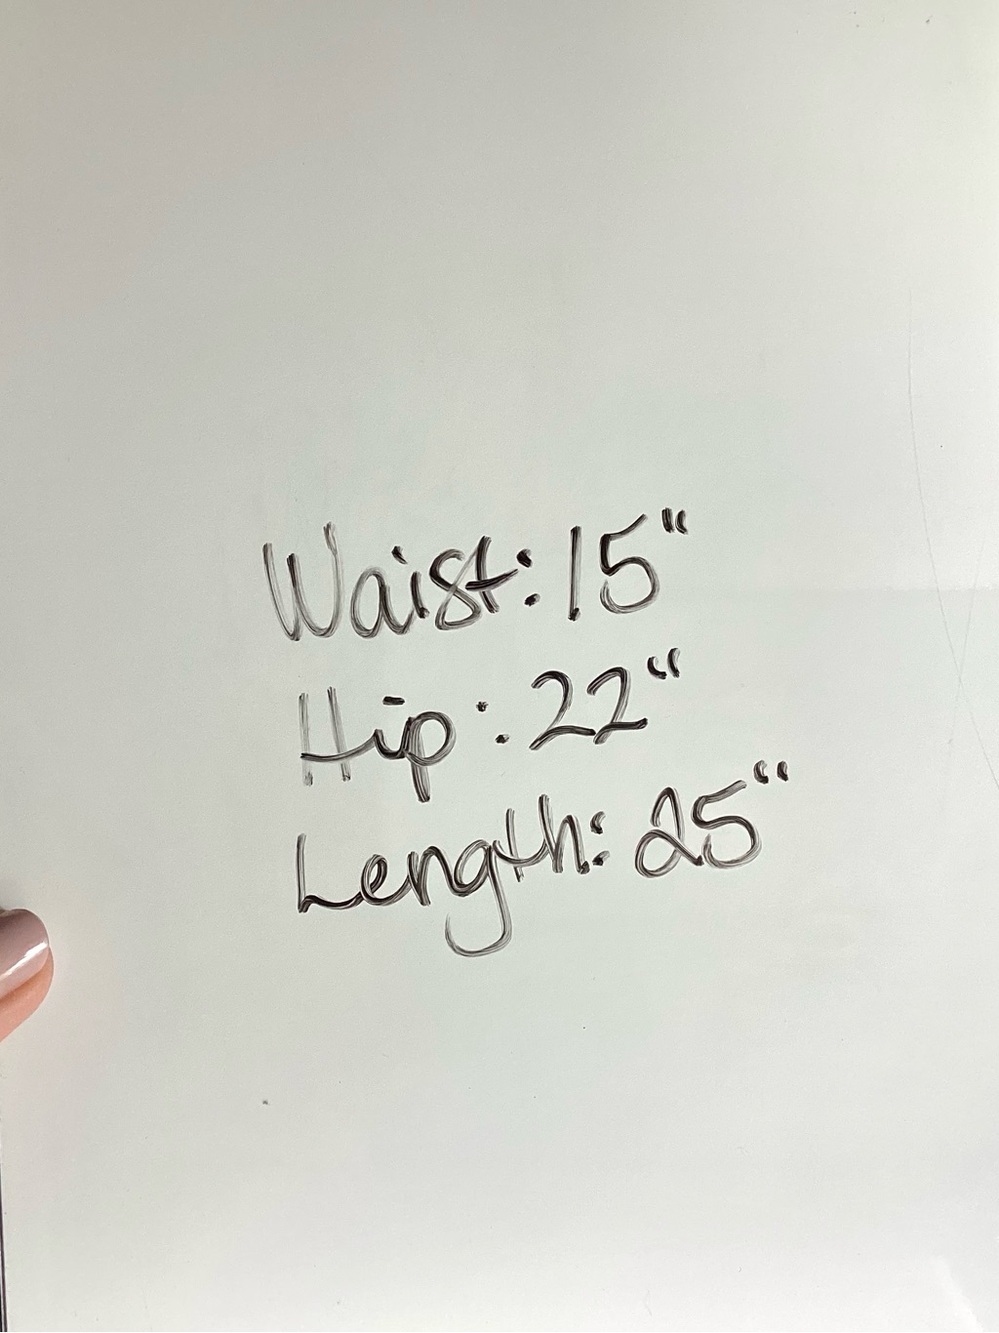 Waist: 15"
Hip: 22"
Length: 25"